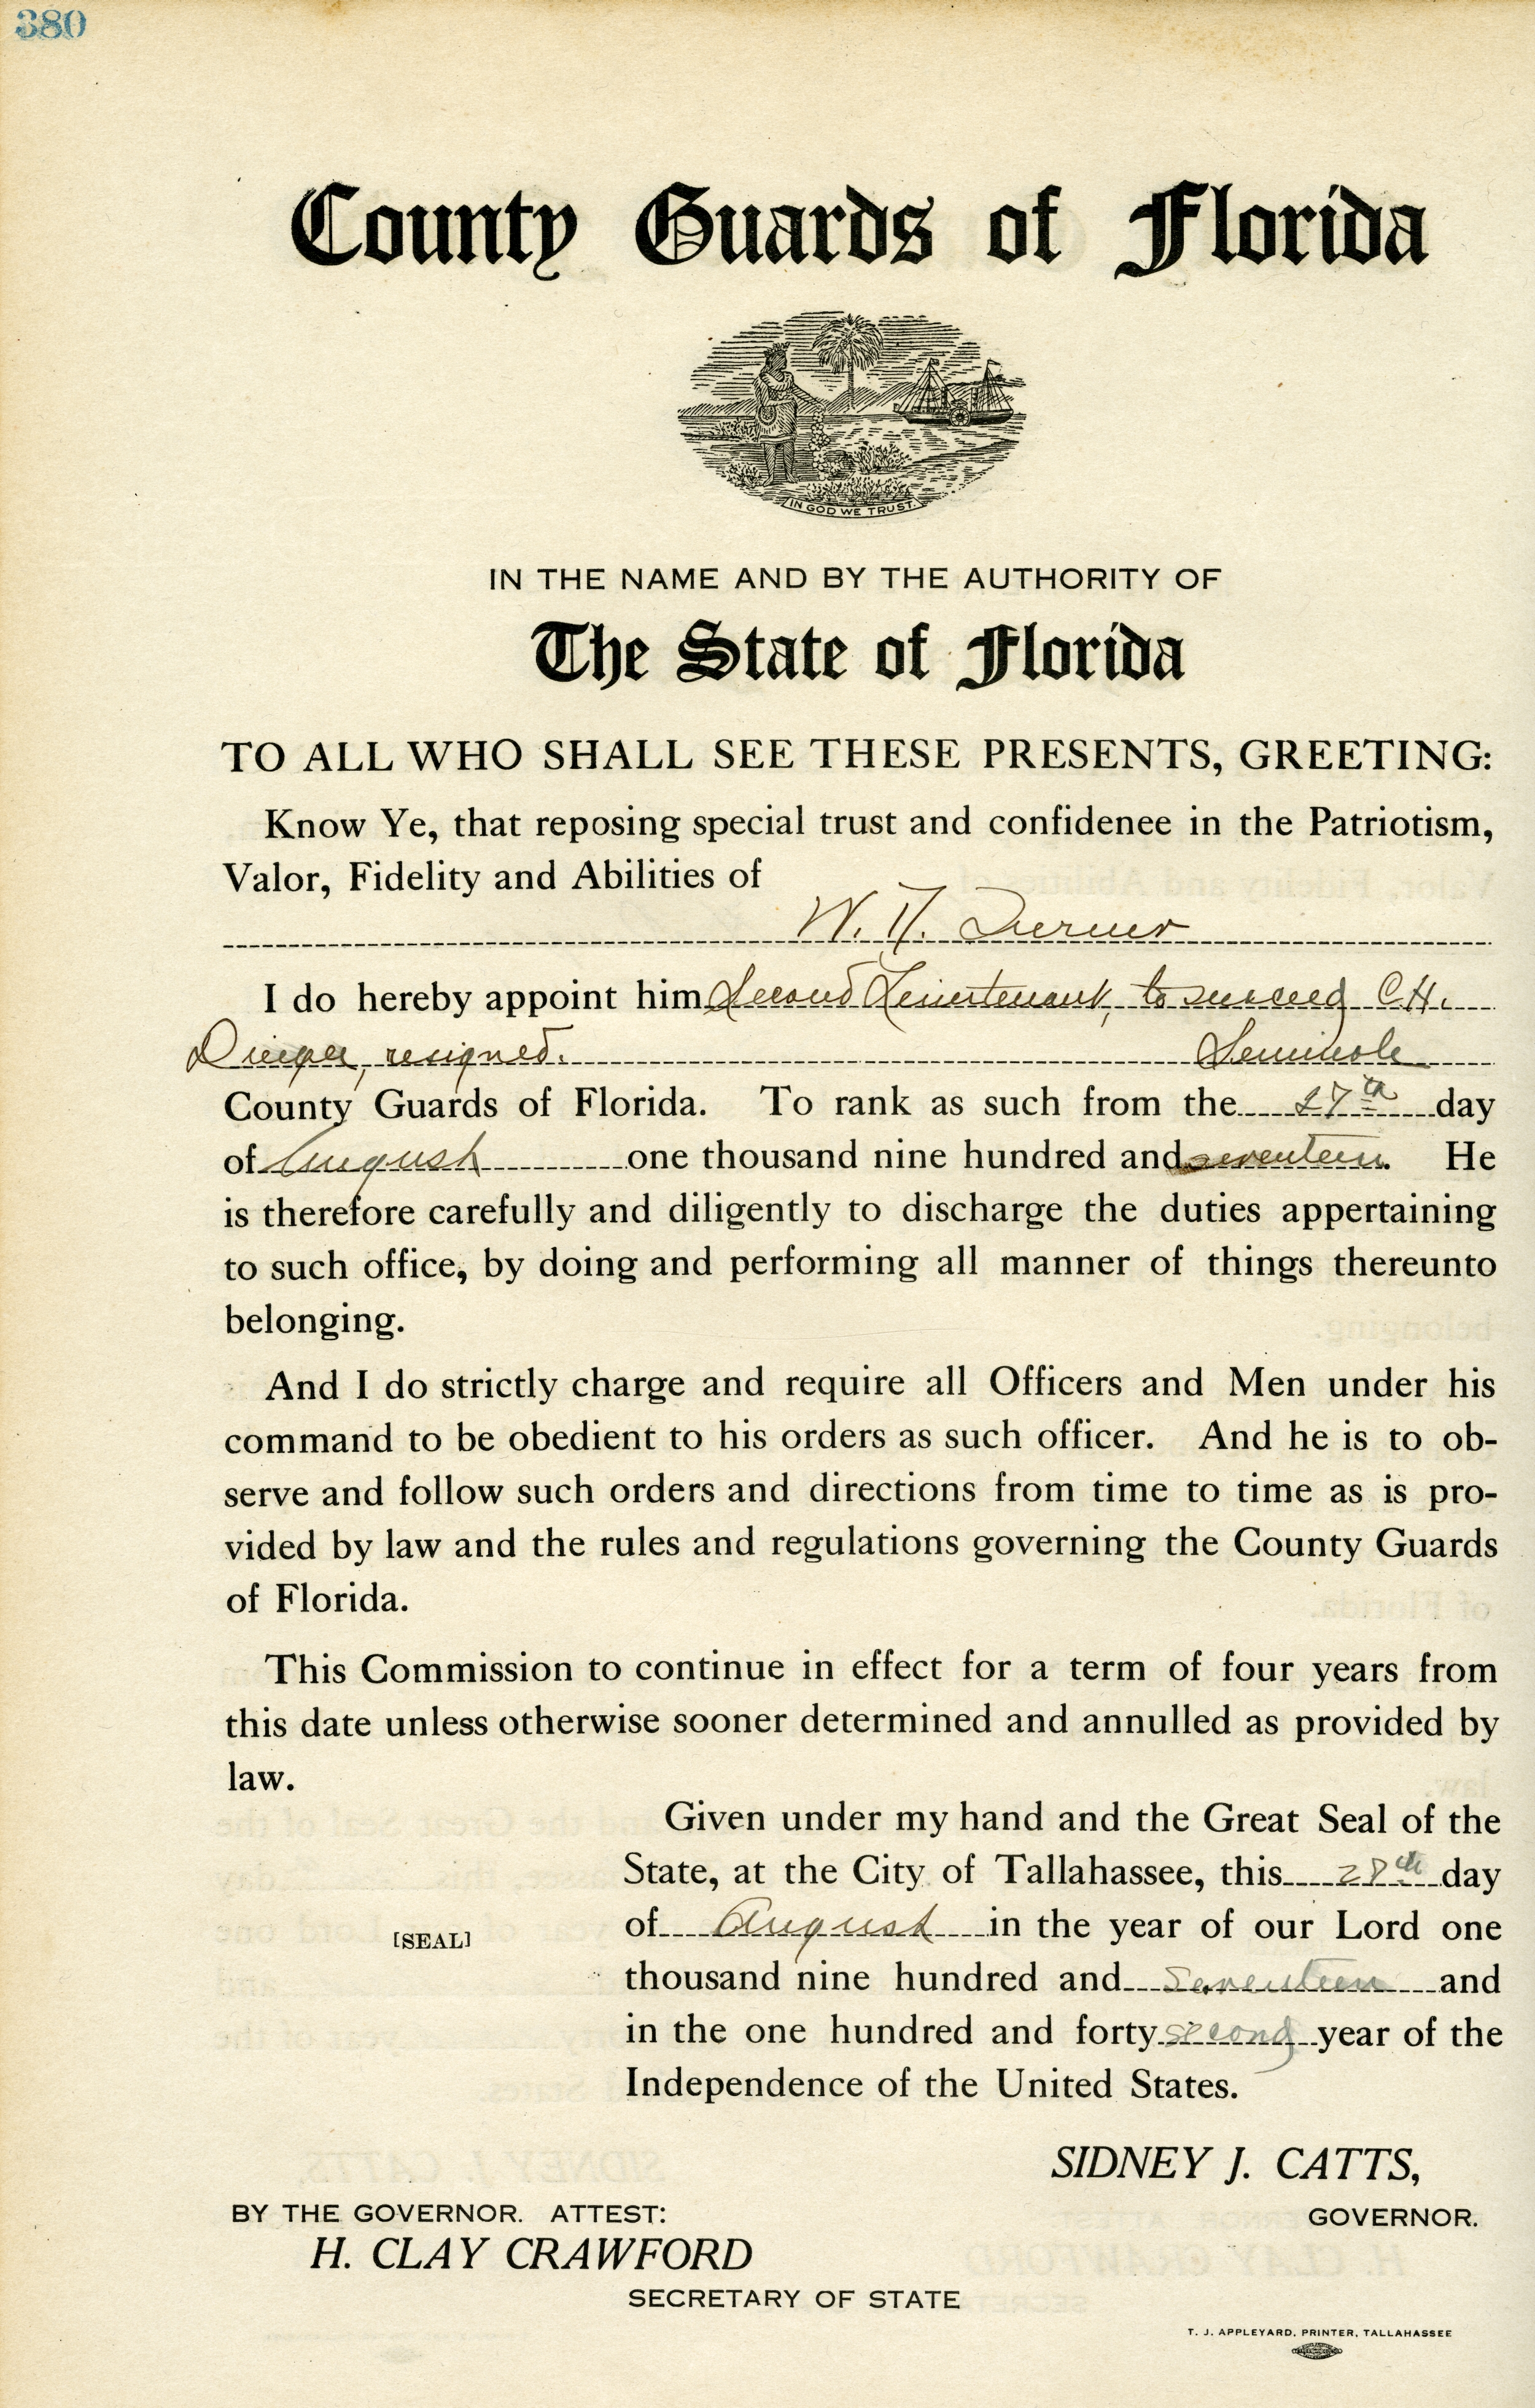 380
County Guards of Florida
IN GOD WE TRUST.
IN THE NAME AND BY THE AUTHORITY OF
The State of Florida
TO ALL WHO SHALL SEE THESE PRESENTS, GREETING:
Know Ye, that reposing special trust and confidenee in the Patriotism,
Valor, Fidelity and Abilities of
W. Turner
I do hereby appoint him Second Lieutenant, to succeed C.H.
resigned. Seminole
County Guards of Florida. To rank as such from the 27th day
of August one thousand nine hundred and seventeen. He
is therefore carefully and diligently to discharge the duties appertaining
to such office, by doing and performing all manner of things thereunto
belonging.
And I do strictly charge and require all Officers and Men under his
command to be obedient to his orders as such officer. And he is to ob-
serve and follow such orders and directions from time to time as is pro-
vided by law and the rules and regulations governing the County Guards
of Florida.
This Commission to continue in effect for a term of four years from
this date unless otherwise sooner determined and annulled as provided by
law.
Given under my hand and the Great Seal of the
State, at the City of Tallahassee, this 28th day
of August in the year of our Lord one
[SEAL]
thousand nine hundred and seventeen and
in the one hundred and forty second year of the
Independence of the United States.
SIDNEY J. CATTS,
GOVERNOR.
BY THE GOVERNOR. ATTEST:
H. CLAY CRAWFORD
SECRETARY OF STATE
T. J. APPLEYARD, PRINTER, TALLAHASSEE